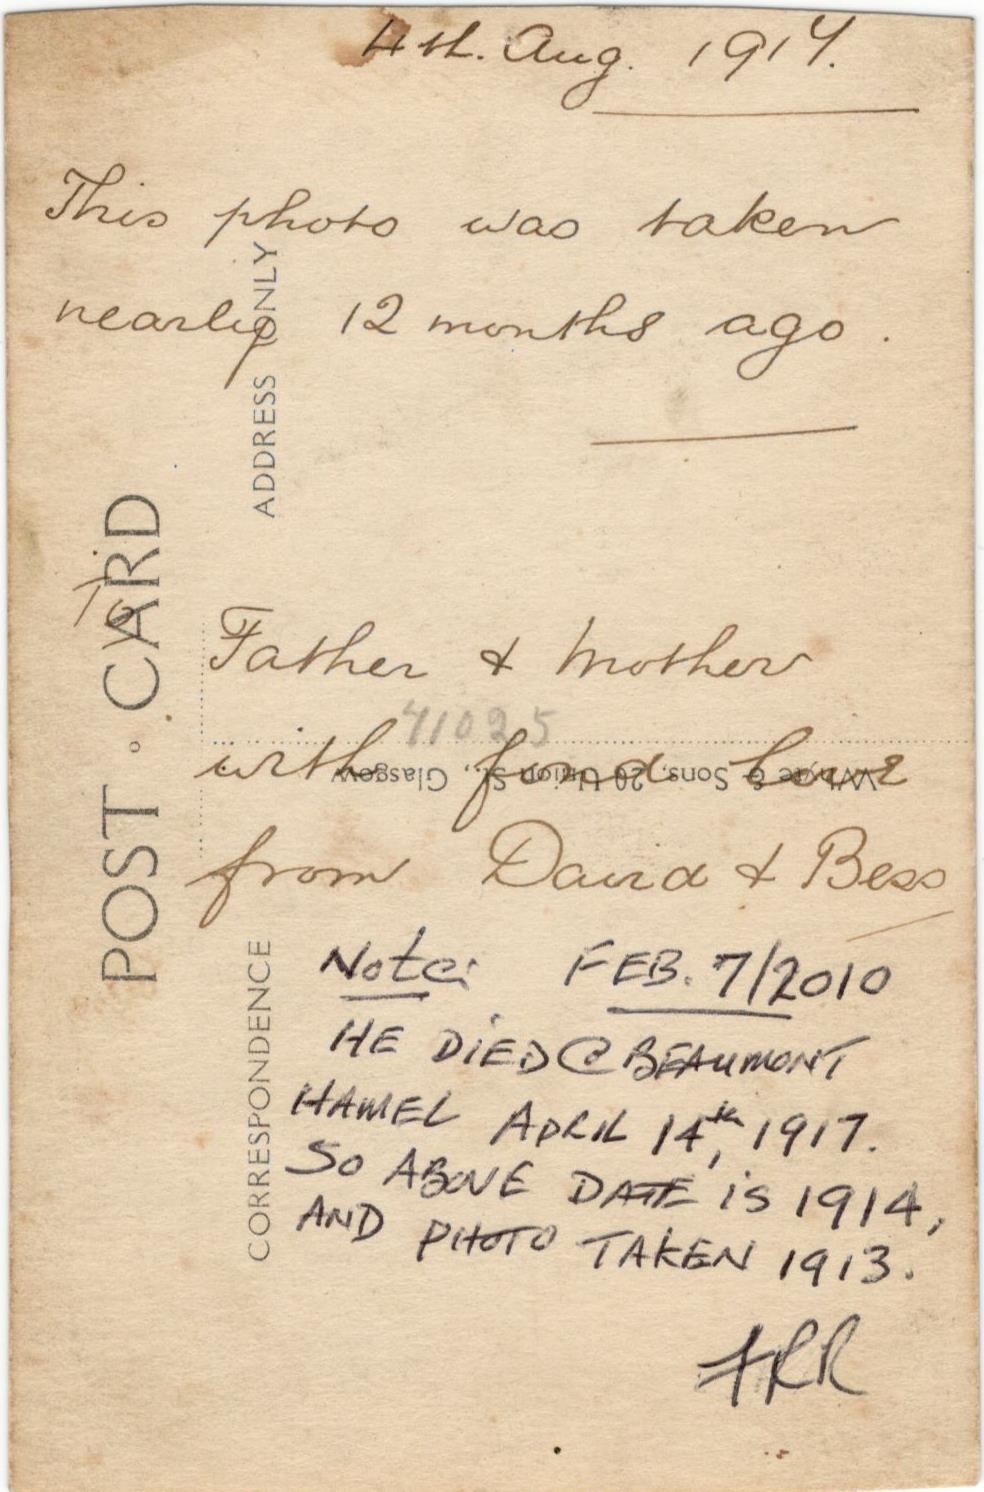 4th. Aug. 1914.
This photo was taken
nearly 12 months ago.
To
Father & Mother
with fond love
from David & Bess
Note: FEB. 7/2010
HE DIED @ BEAUMONT
HAMEL APRIL 14th, 1917.
SO ABOVE DATE IS 1914,
AND PHOTO TAKEN 1913.
POST CARD
ADDRESS ONLY
CORRESPONDENCE
41025
Whyte & Sons, 20 Union St., Glasgow